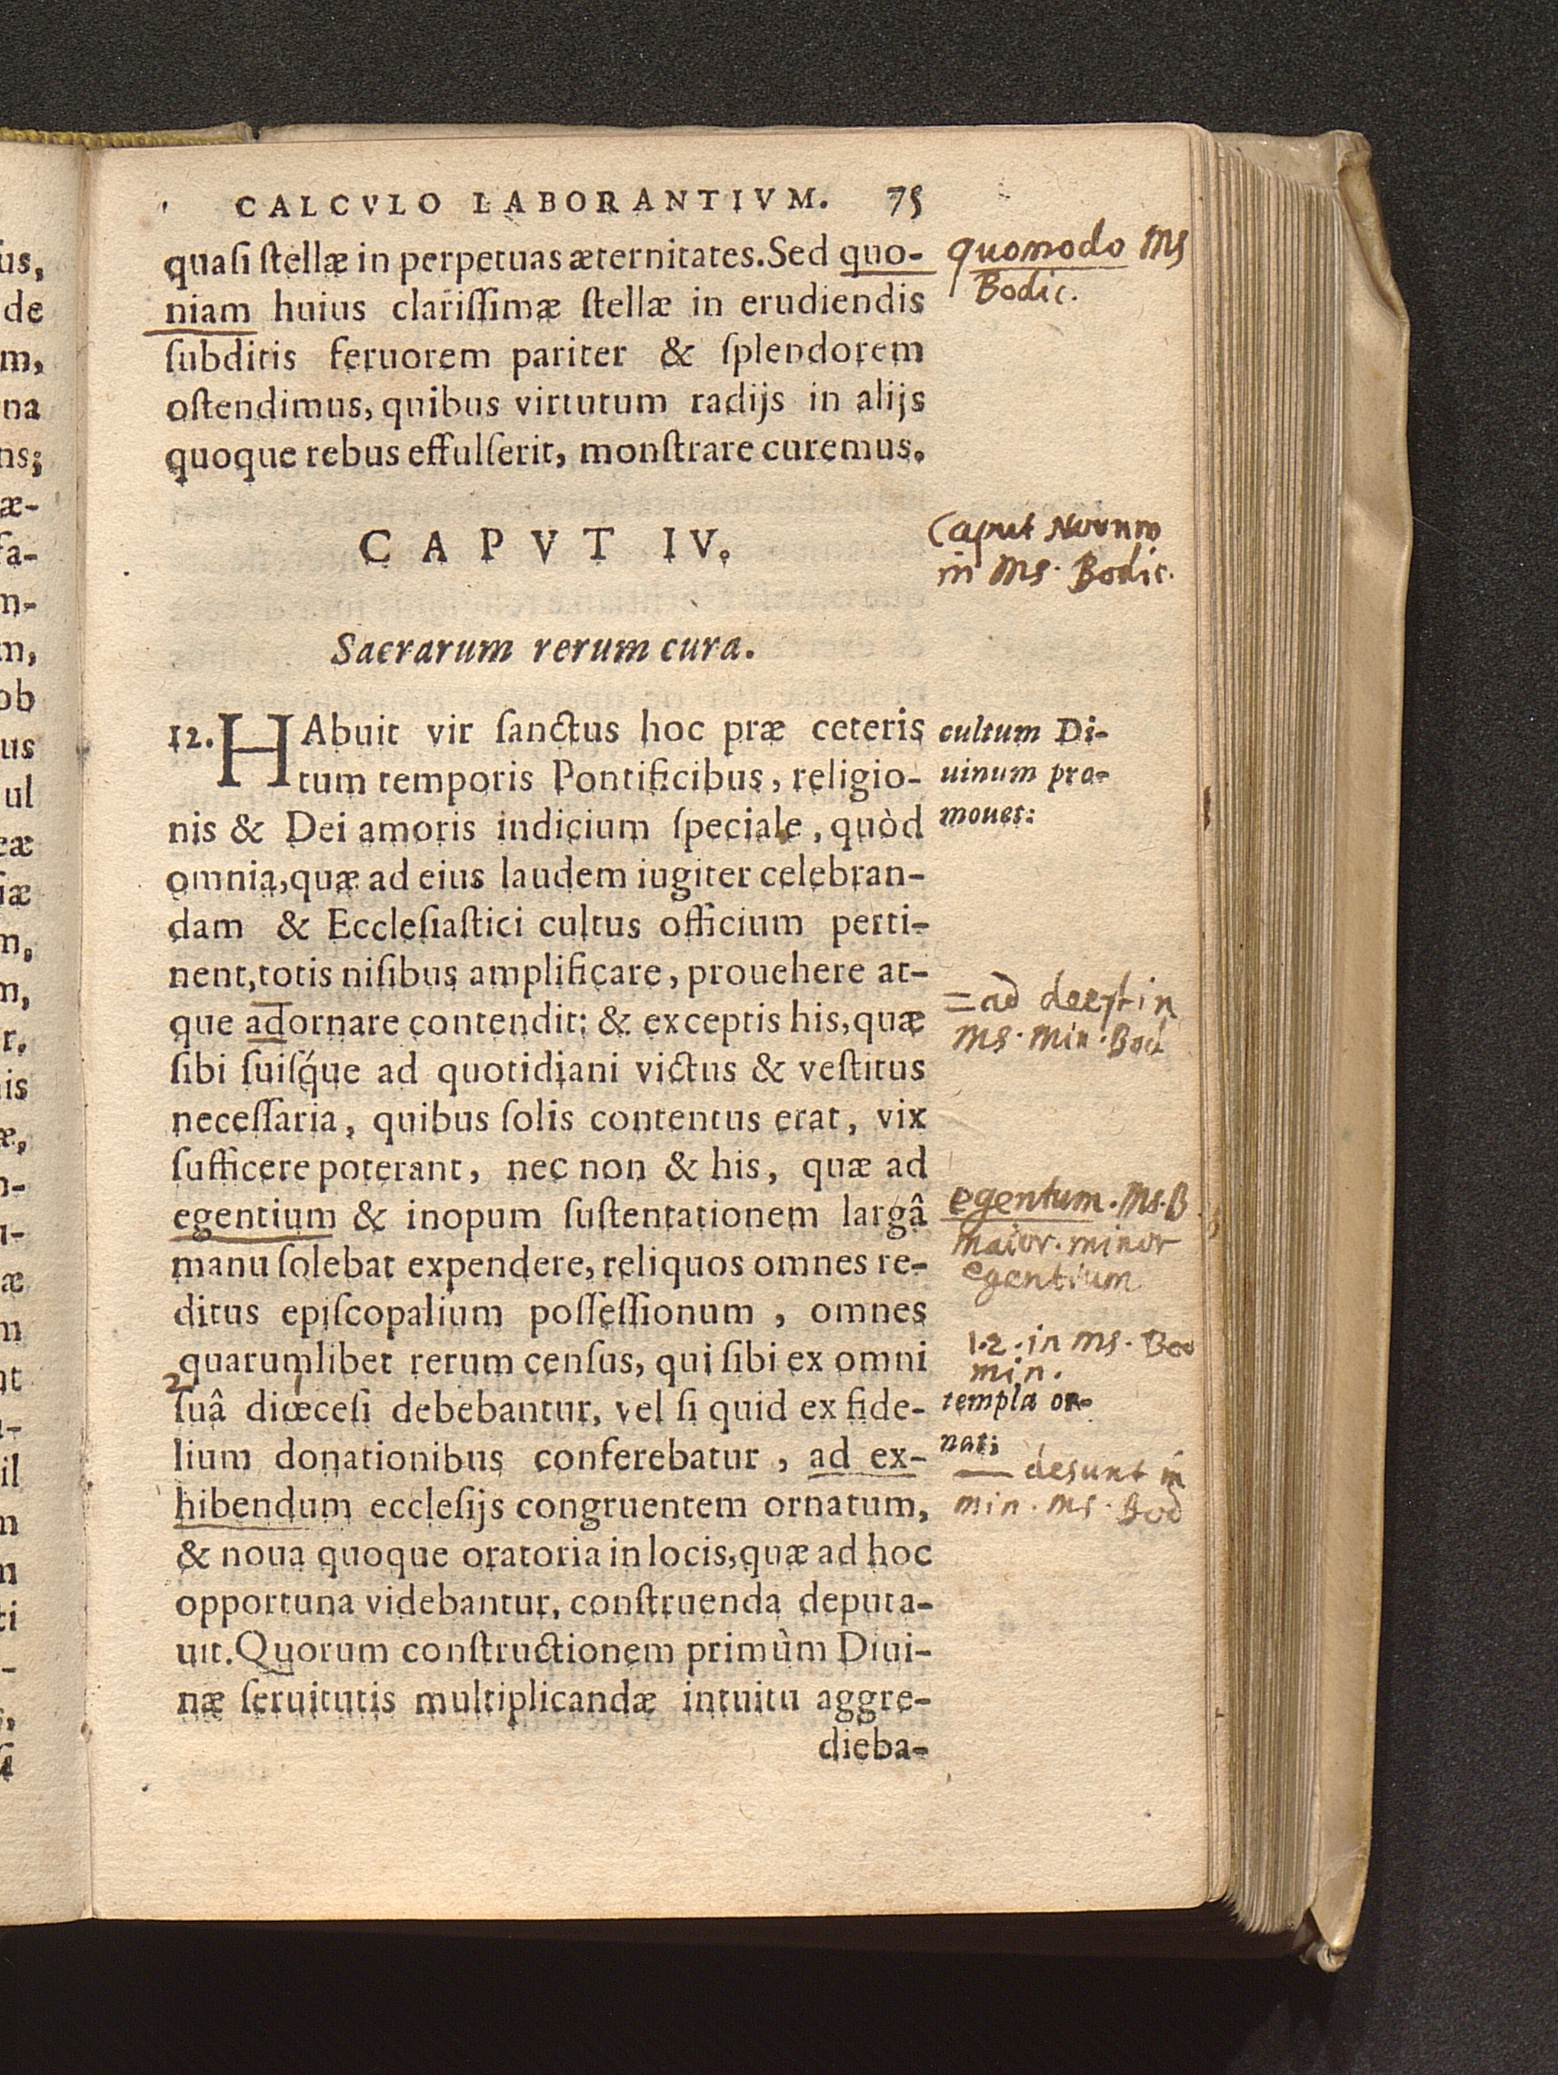 CALCVLO LABORANTIVM. 75
quasi stellæ in perpetuas æternitates. Sed quo-
niam huius clarissimæ stellæ in erudiendis
subditis feruorem pariter & splendorem
ostendimus, quibus virtutum radijs in alijs
quoque rebus effulserit, monstrare curemus.
quomodo Ms
Bodic.
CAPVT IV.
Caput Novum
in Ms. Bodic.
Sacrarum rerum cura.
12. HAbuit vir sanctus hoc præ ceteris
tum temporis Pontificibus, religio-
nis & Dei amoris indicium speciale, quòd
omnia, quæ ad eius laudem iugiter celebran-
dam & Ecclesiastici cultus officium perti-
nent, totis nisibus amplificare, prouehere at-
que adornare contendit; & exceptis his, quæ
sibi suisq́ue ad quotidiani victus & vestitus
necessaria, quibus solis contentus erat, vix
sufficere poterant, nec non & his, quæ ad
egentium & inopum sustentationem largâ
manu solebat expendere, reliquos omnes re-
ditus episcopalium possessionum, omnes
quarumlibet rerum census, qui sibi ex omni
2 1
suâ diœcesi debebantur, vel si quid ex fide-
lium donationibus conferebatur, ad ex-
hibendum ecclesijs congruentem ornatum,
& noua quoque oratoria in locis, quæ ad hoc
opportuna videbantur, construenda deputa-
uit. Quorum constructionem primùm Diui-
næ seruitutis multiplicandæ intuitu aggre-
dieba-
cultum Di-
uinum pro-
mouet:
= ad deest in
Ms. min. Bod
egentum. Ms. B
maior. minor
egentium
1.2. in Ms. Bod
min.
templa or-
nat;
— desunt in
min. Ms. Bod
us,
de
m,
na
ns;
æ-
sa-
n-
m,
ob
us
ul
eæ
iæ
m,
m,
r.
is
æ,
n-
u-
æ
m
nt
il
m
m
ti